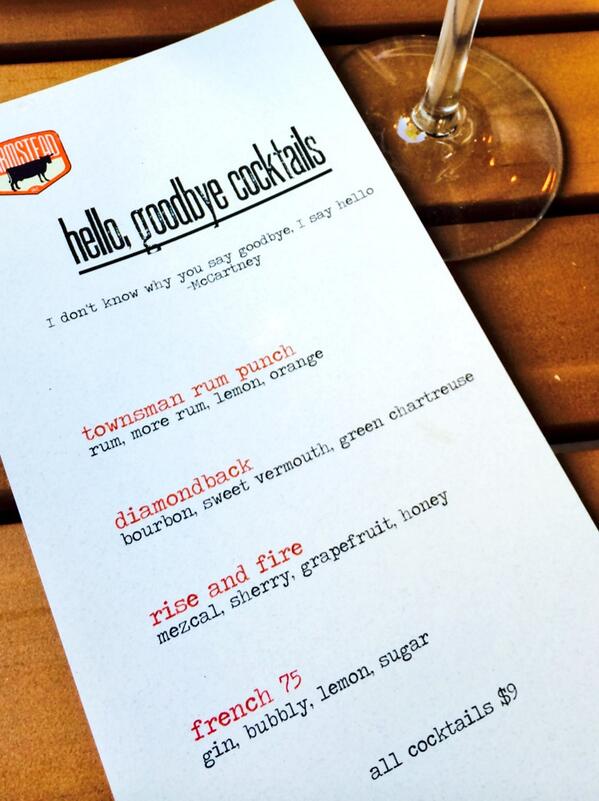 RMSTEAD
hello, goodbye cocktails
I don't know why you say goodbye, I say hello
-McCartney
townsman rum punch
rum, more rum, lemon, orange
diamondback
bourbon, sweet vermouth, green chartreuse
rise and fire
mezcal, sherry, grapefruit, honey
french 75
gin, bubbly, lemon, sugar
all cocktails $9